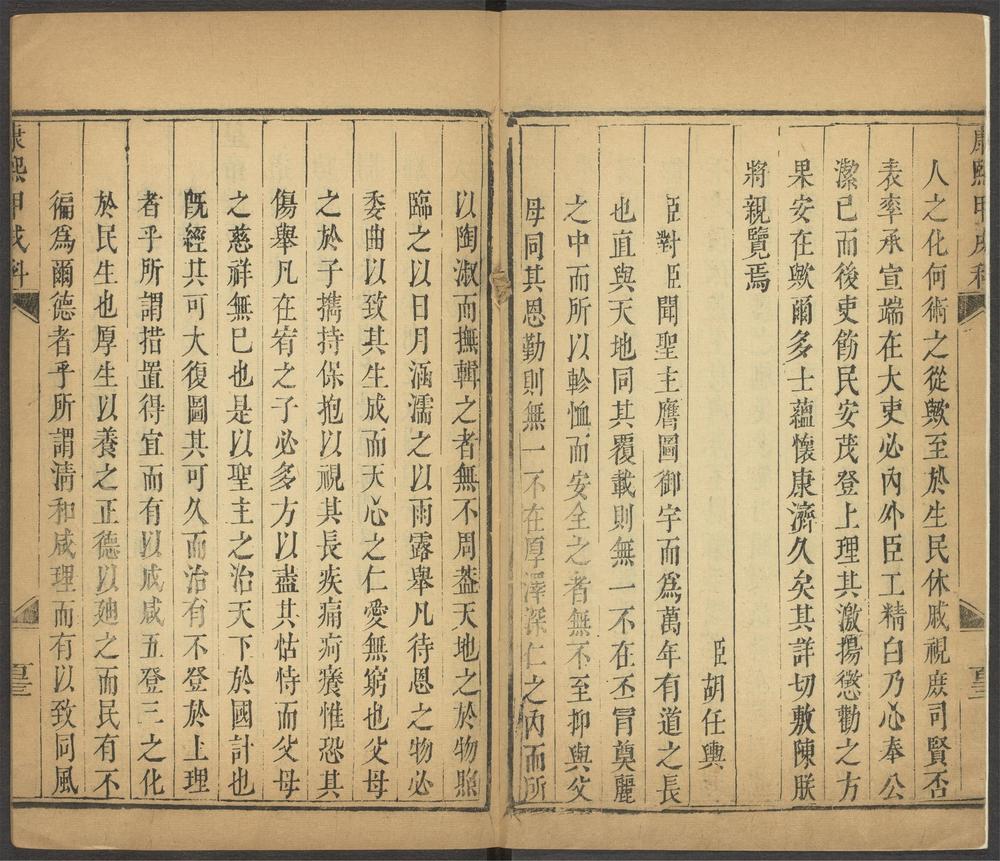 康熙甲戌科
人之化何術之從歟至於生民休戚視庶司賢否
表率承宣端在大吏必內外臣工精白乃心奉公
潔己而後吏飭民安茂登上理其激揚懲勸之方
果安在歟爾多士蘊懷康濟久矣其詳切敷陳朕
將親覽焉
臣胡任輿
臣對臣聞聖主膺圖御宇而爲萬年有道之長
也直與天地同其覆載則無一不在丕冐奠麗
之中而所以軫恤而安全之者無不至抑與父
母同其恩勤則無一不在厚澤深仁之內而所
以陶淑而撫輯之者無不周葢天地之於物照
臨之以日月涵濡之以雨露舉凡待恩之物必
委曲以致其生成而天心之仁愛無窮也父母
之於子擕持保抱以視其長疾痛疴癢惟恐其
傷舉凡在宥之子必多方以盡其怙恃而父母
之慈祥無已也是以聖主之治天下於國計也
旣經其可大復圖其可久而治有不登於上理
者乎所謂措置得宜而有以成咸五登三之化
於民生也厚生以養之正德以廸之而民有不
徧爲爾德者乎所謂淸和咸理而有以致同風
康熙甲戌科